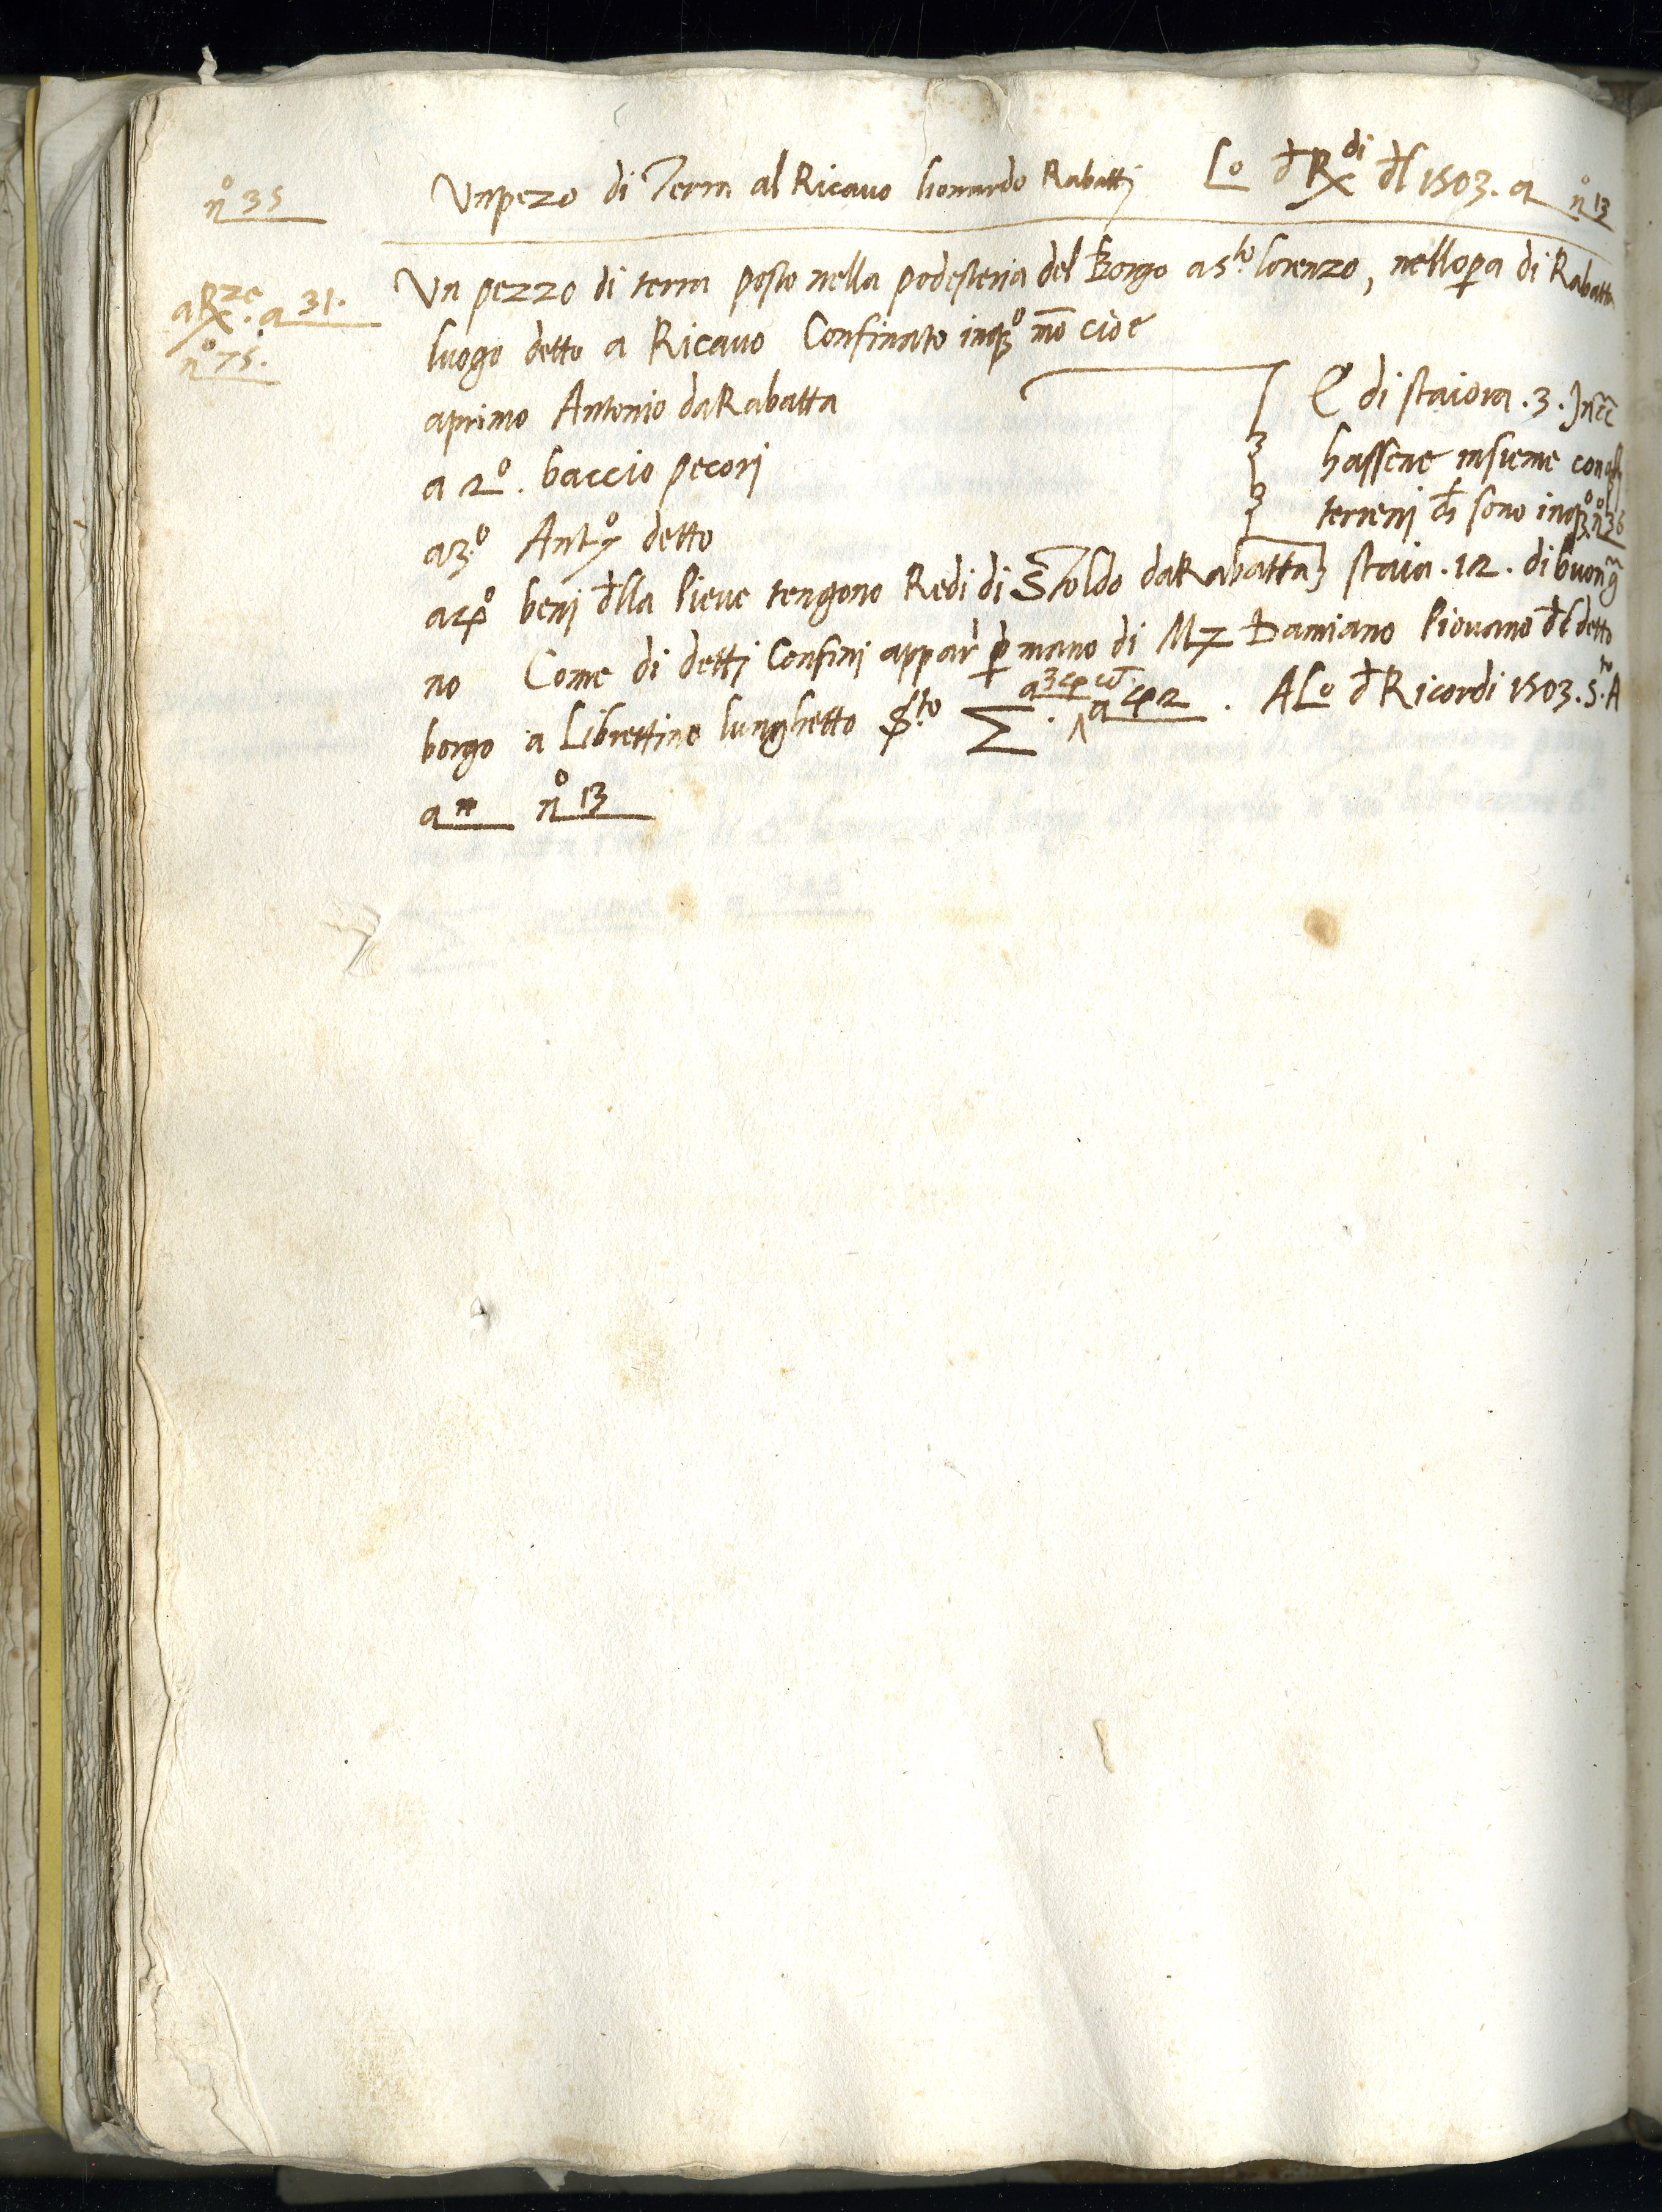 nº 35
Un pezo di Terra al Ricavo lionardo Rabatti Lo d Rx di dl 1503. a nº 13
a Rx ze. a 31.
nº 75.
Un pezzo di terra posto nella podesteria del Borgo a sto lorenzo, nellopa di Rabatta
luogo detto a Ricavo Confinato inqº mo cioe
aprimo Antonio da Rabatta
a 2º. baccio pecori
a 3º Antº detto
a 4º beni dlla Pieve tengono Redi di Stoldo da Rabatta
E di staiora .3. In
hassene insieme con
terreni ch sono inqº nº 36
staia .12. di buon g
no Come di detti Confini appar p mano di Mz Damiano Piovano dl detto
borgo a Librettino lunghetto Sto . a 42 . A Lo d Ricordi 1503. sto A
a nº 13